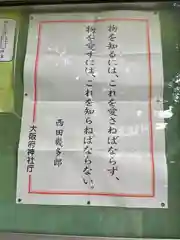 物を知るには、これを愛さねばならず、
物を愛するには、これを知らねばならない。
西田幾多郎
大阪府神社庁